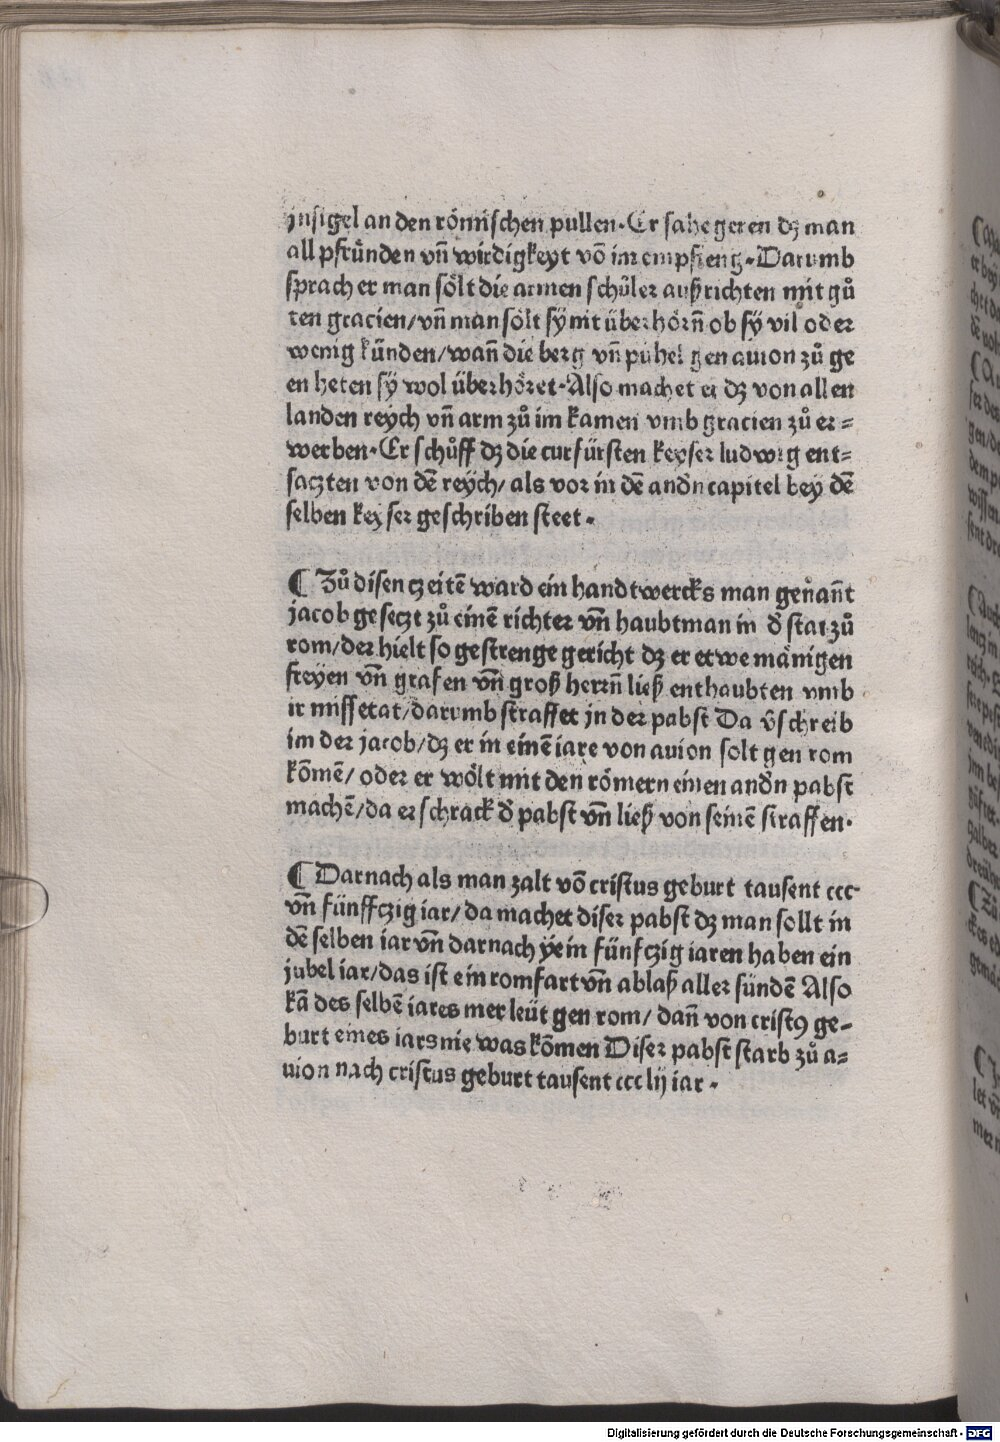 jnsigel an den römischen pullen. Er sahe geren dz man
all pfrůnden vn̄ wirdigkeyt vō im empfieng. Darumb
sprach er man sölt die armen schůler außrichten mit gů
ten gracien/ vn̄ man sölt sÿ nit überhörn̄ ob sÿ vil oder
wenig künden/ wan̄ die berg vn̄ pühel gen auion zů ge
en heten sÿ wol überhöret. Also machet er dz von allen
landen reÿch vn̄ arm zů im kamen vmb gracien zů er=
werben. Er schůff dz die curfürsten keyser ludwig ent=
saczten von dē reÿch/ als vor in dē andn̄ capitel beÿ dē
selben keyser geschriben steet.
¶ Zů disen czeitē ward ein handtwercks man genan̄t
jacob geseczt zů einē richter vn̄ haubtman in d̄ stat zů
rom/ der hielt so gestrenge gericht dz er etwe mänigen
freÿen vn̄ grafen vn̄ groß herrn̄ ließ enthaubten vmb
ir missetat/ darumb straffet jn der pabst Da v̄schreib
im der jacob/ dz er in einē iare von auion solt gen rom
kōmē/ oder er wölt mit den römern einen andn̄ pabst
machē/ da erschrack d̄ pabst vn̄ ließ von seinē straffen.
¶ Darnach als man zalt vō cristus geburt tausent ccc
vn̄ fünffczig iar/ da machet diser pabst dz man sollt in
dē selben iar vn̄ darnach ÿe in fünfczig iaren haben ein
jubel iar/ das ist ein romfart vn̄ ablaß aller sündē Also
kā des selbē iares mer leüt gen rom/ dan̄ von cristꝯ ge=
burt eines iars nie was kōmen Diser pabst starb zů a=
uion nach cristus geburt tausent ccc lij iar.
Digitalisierung gefördert durch die Deutsche Forschungsgemeinschaft - DFG